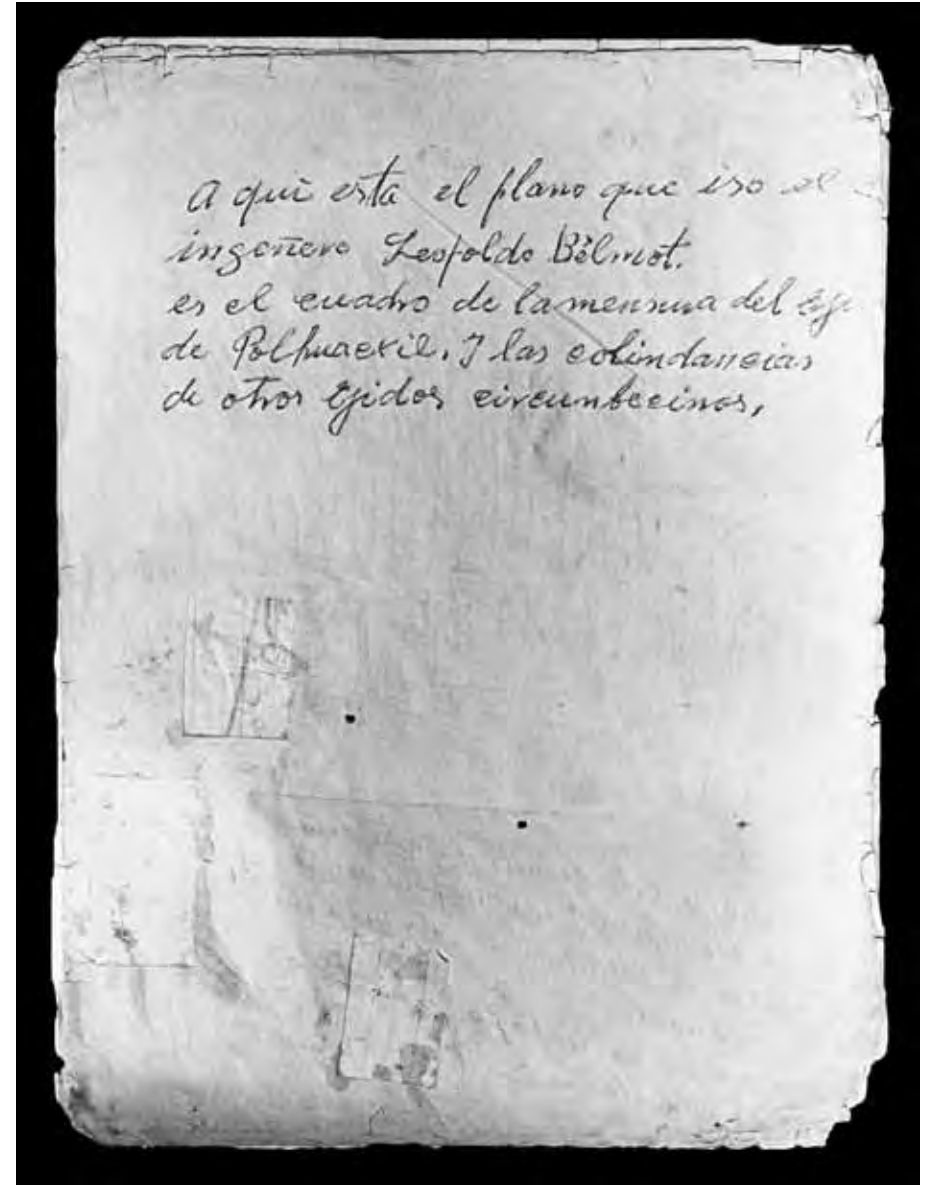 A qui esta el plano que iso el
ingeñero Leopoldo Bélmot.
es el cuadro de la mensura del eji
de Polhuacxil. I las colindancias
de otros Ejidos circunbecinos,